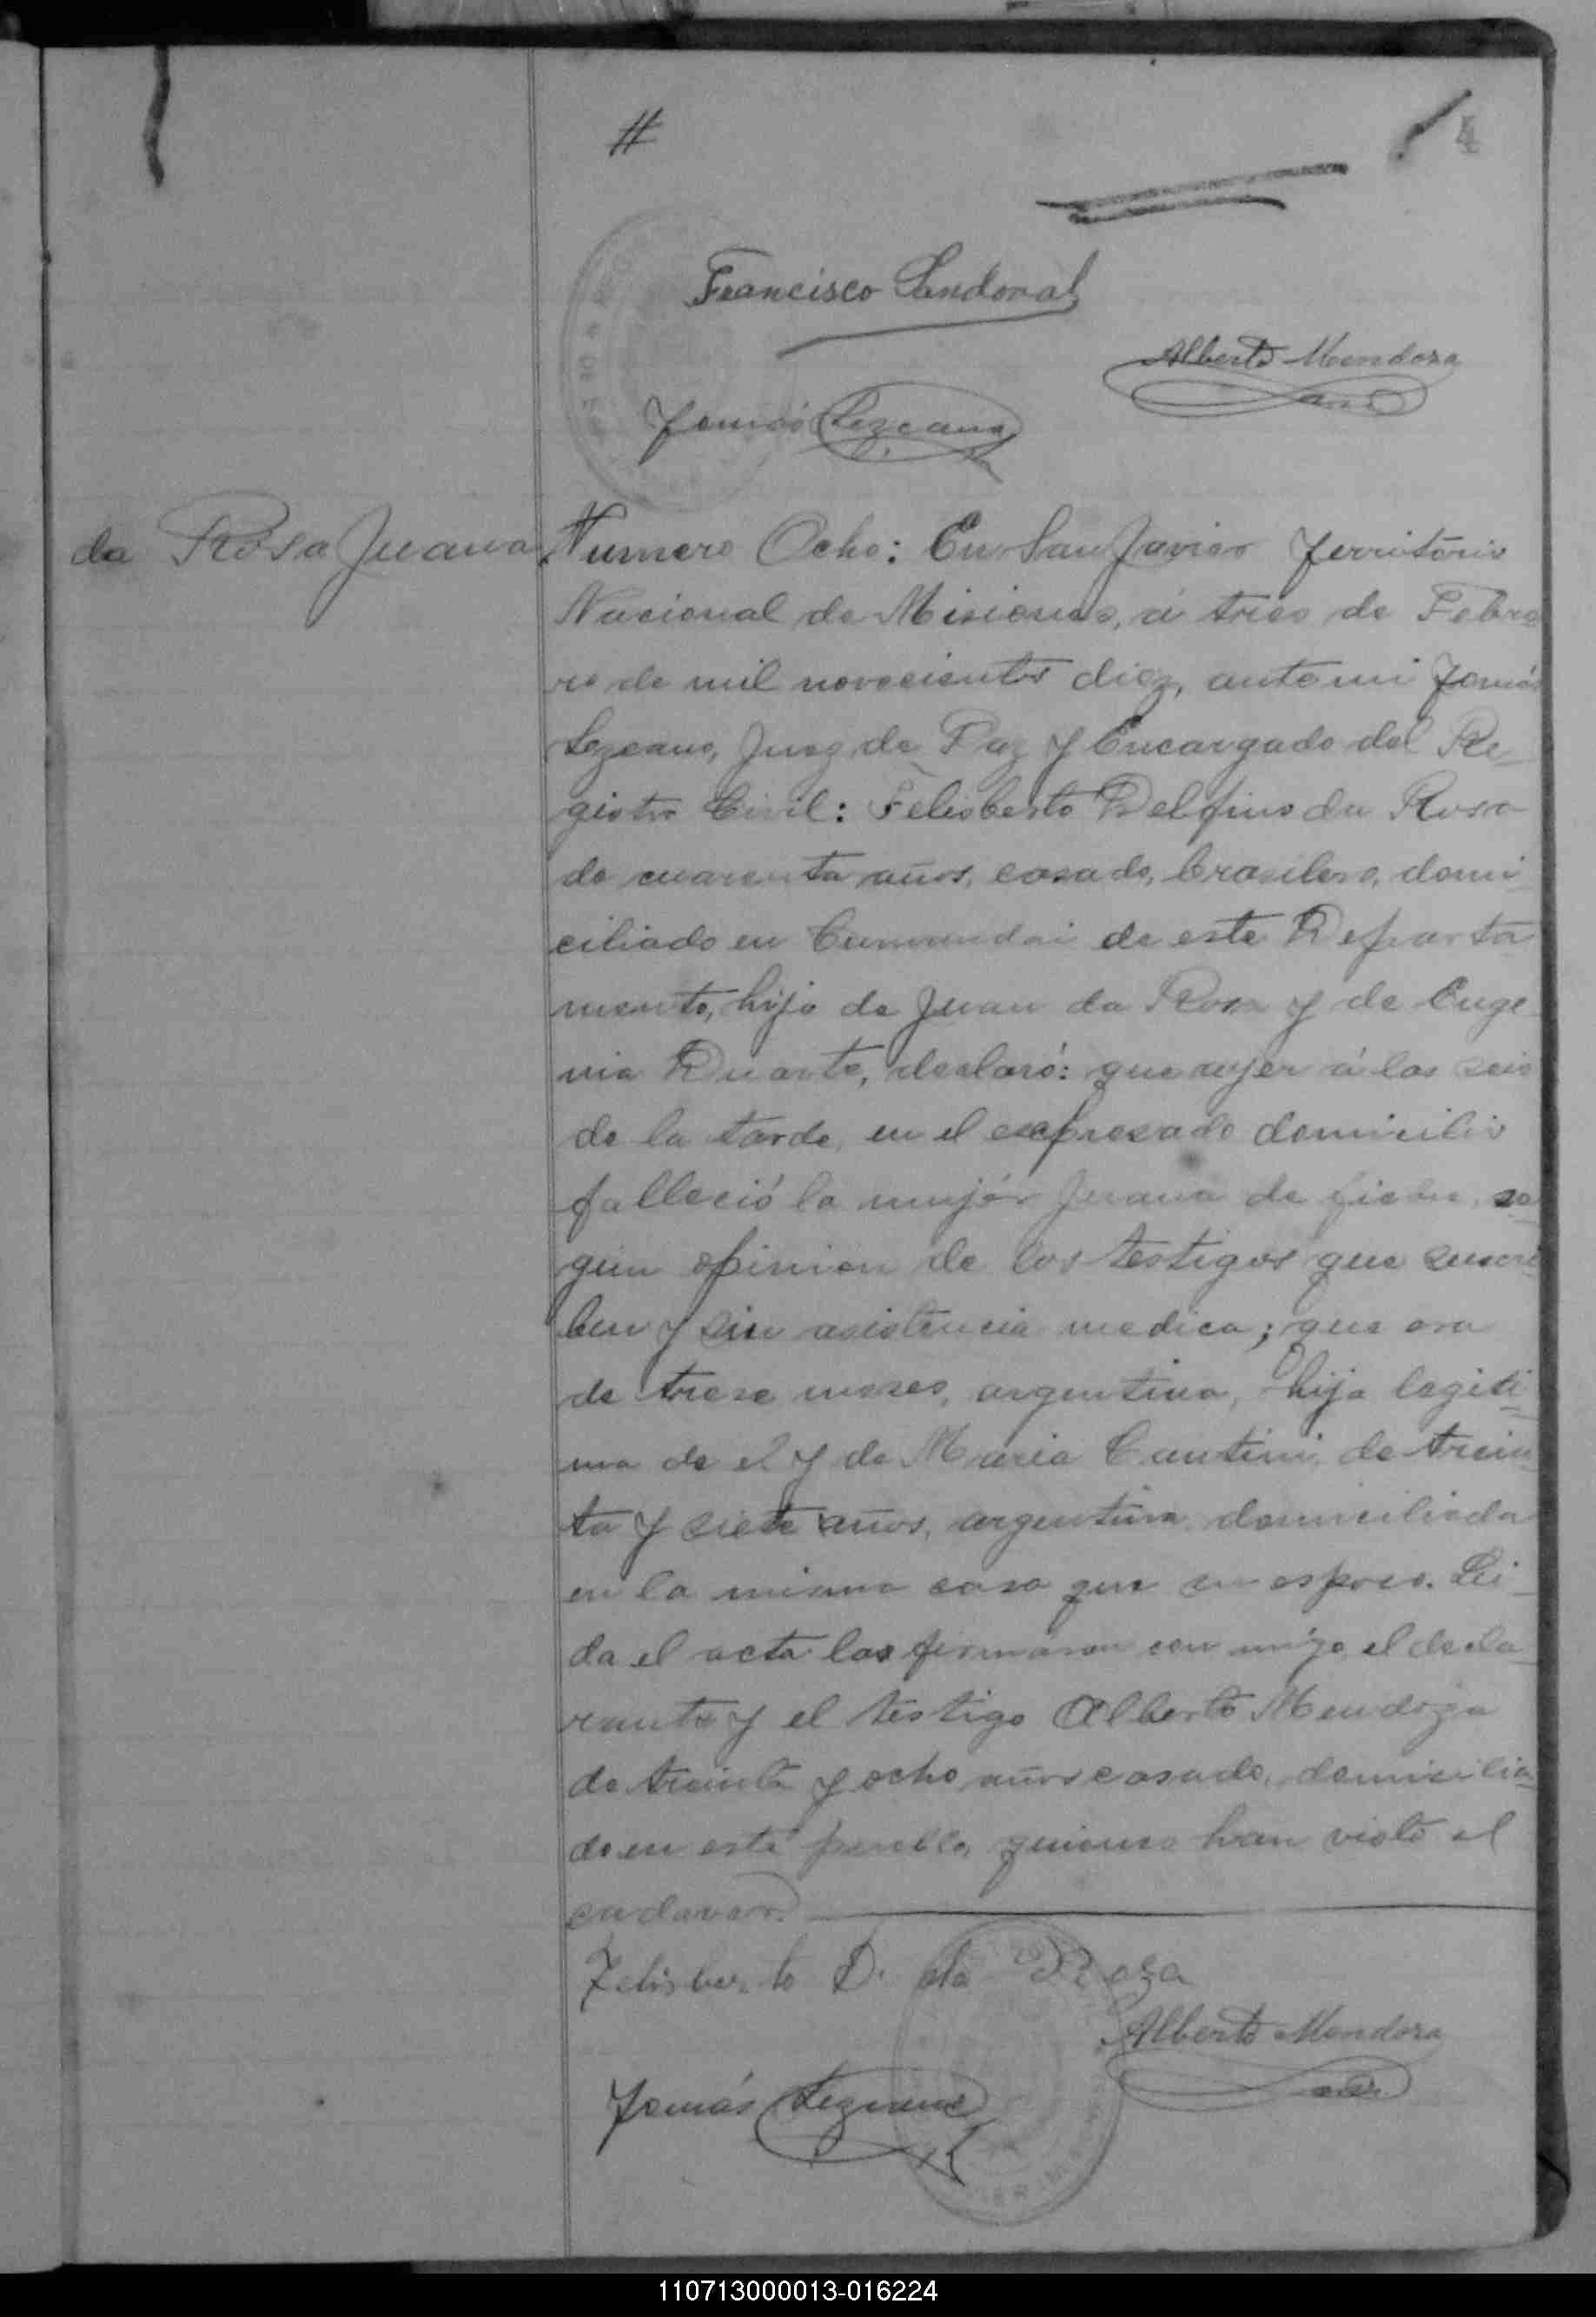 #
4
Francisco Sandoval
Alberto Mendoza
Tomás Lezcano
da Rosa Juana
Numero Ocho: En San Javier Territorio
Nacional de Misiones, á tres de Febre
ro de mil novecientos diez, ante mi Tomás
Lezcano, Juez de Paz y Encargado del Re-
gistro Civil: Felisberto Delfino da Rosa
de cuarenta años, casado, brasilero, domi
ciliado en de este Departa
mento, hijo de Juan da Rosa y de Euge
nia Duarte, declaró: que ayer á las seis
de la tarde, en el expresado domicilio
falleció la mujér Juana de fiebre, se
gun opinion de los testigos que suscri
ben y sin asistencia medica; que era
de trese meses, argentina, hija legiti-
ma de el y de Maria Cantini, de trein
ta y siete años, argentina domiciliada
en la misma casa que su esposo. Lei-
da el acta la firmaron con migo, el decla-
rante y el testigo Alberto Mendoza
de treinta y ocho años casado, domicilia-
do en este pueblo, quienes han visto el
cadaver.
Felisberto D. da Roza
Alberto Mendoza
Tomás Lezcano
110713000013-016224